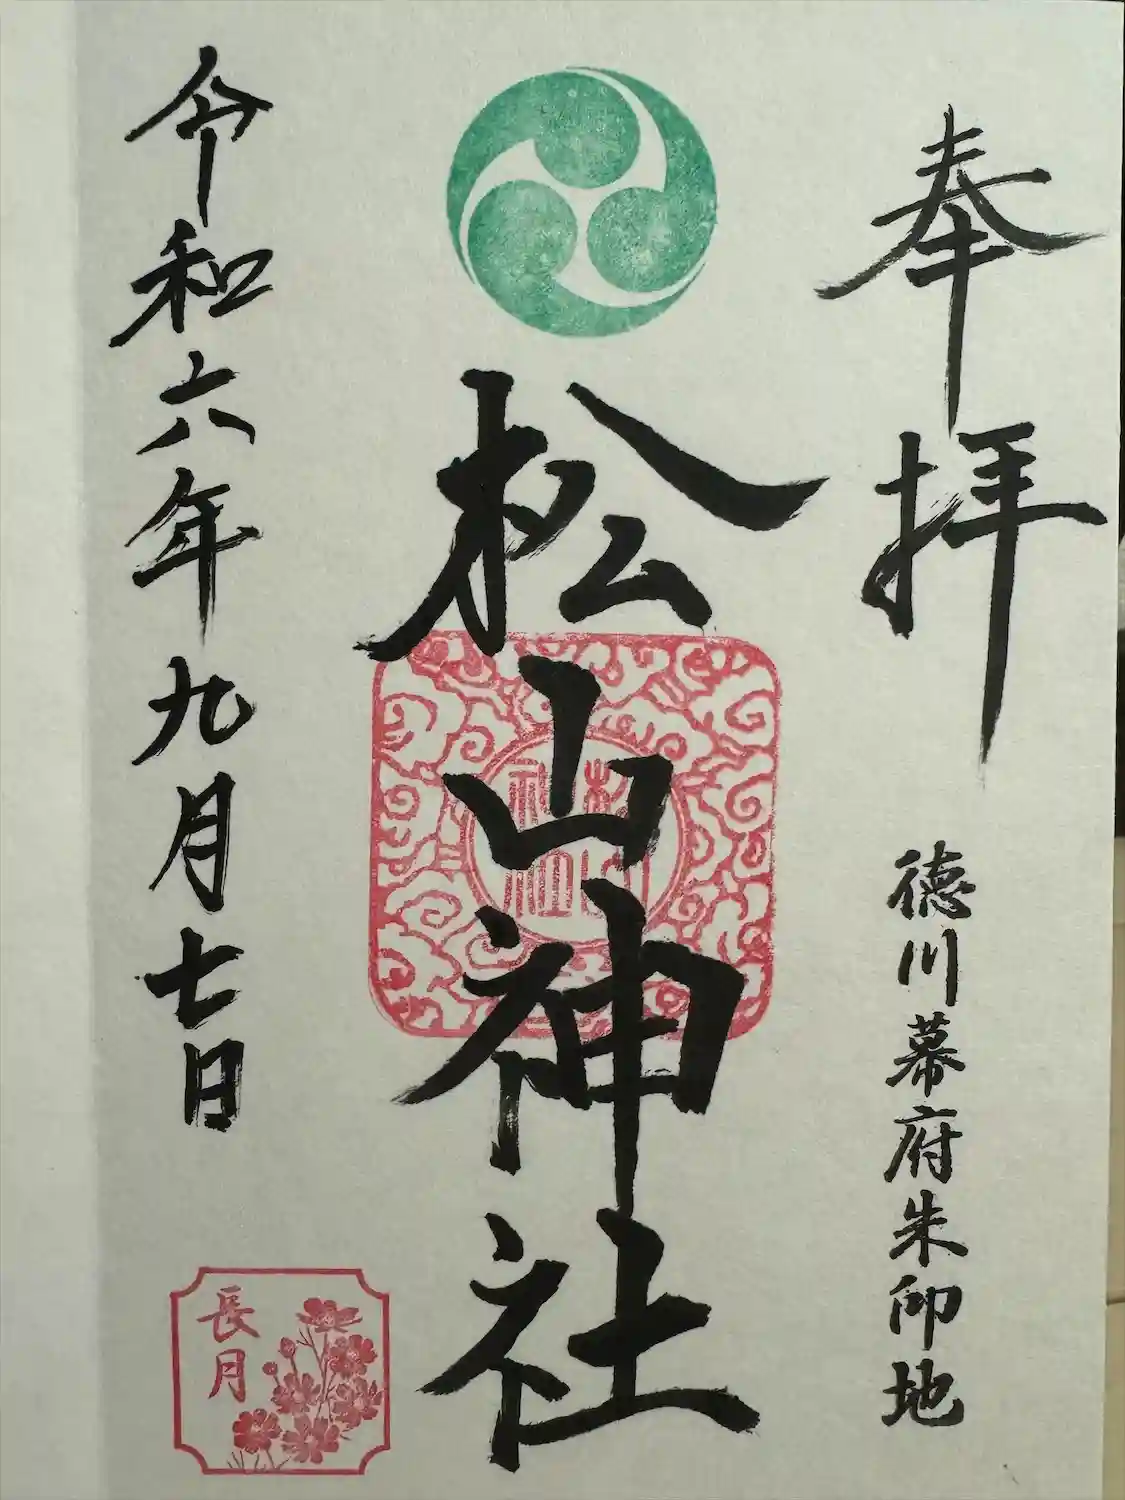 奉拝
徳川幕府朱印地
松山神社
松山神社
令和六年九月七日
長月